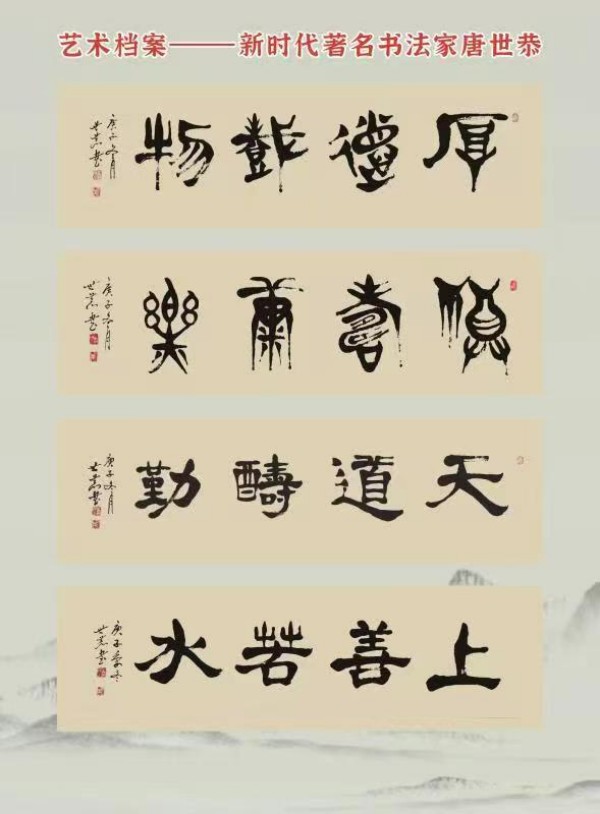 艺术档案———新时代著名书法家唐世恭
厚德載物
庚子冬月
世恭书
壽康樂
庚子冬月
世恭书
天道醻勤
庚子冬月
世恭书
上善若水
庚子
世恭书